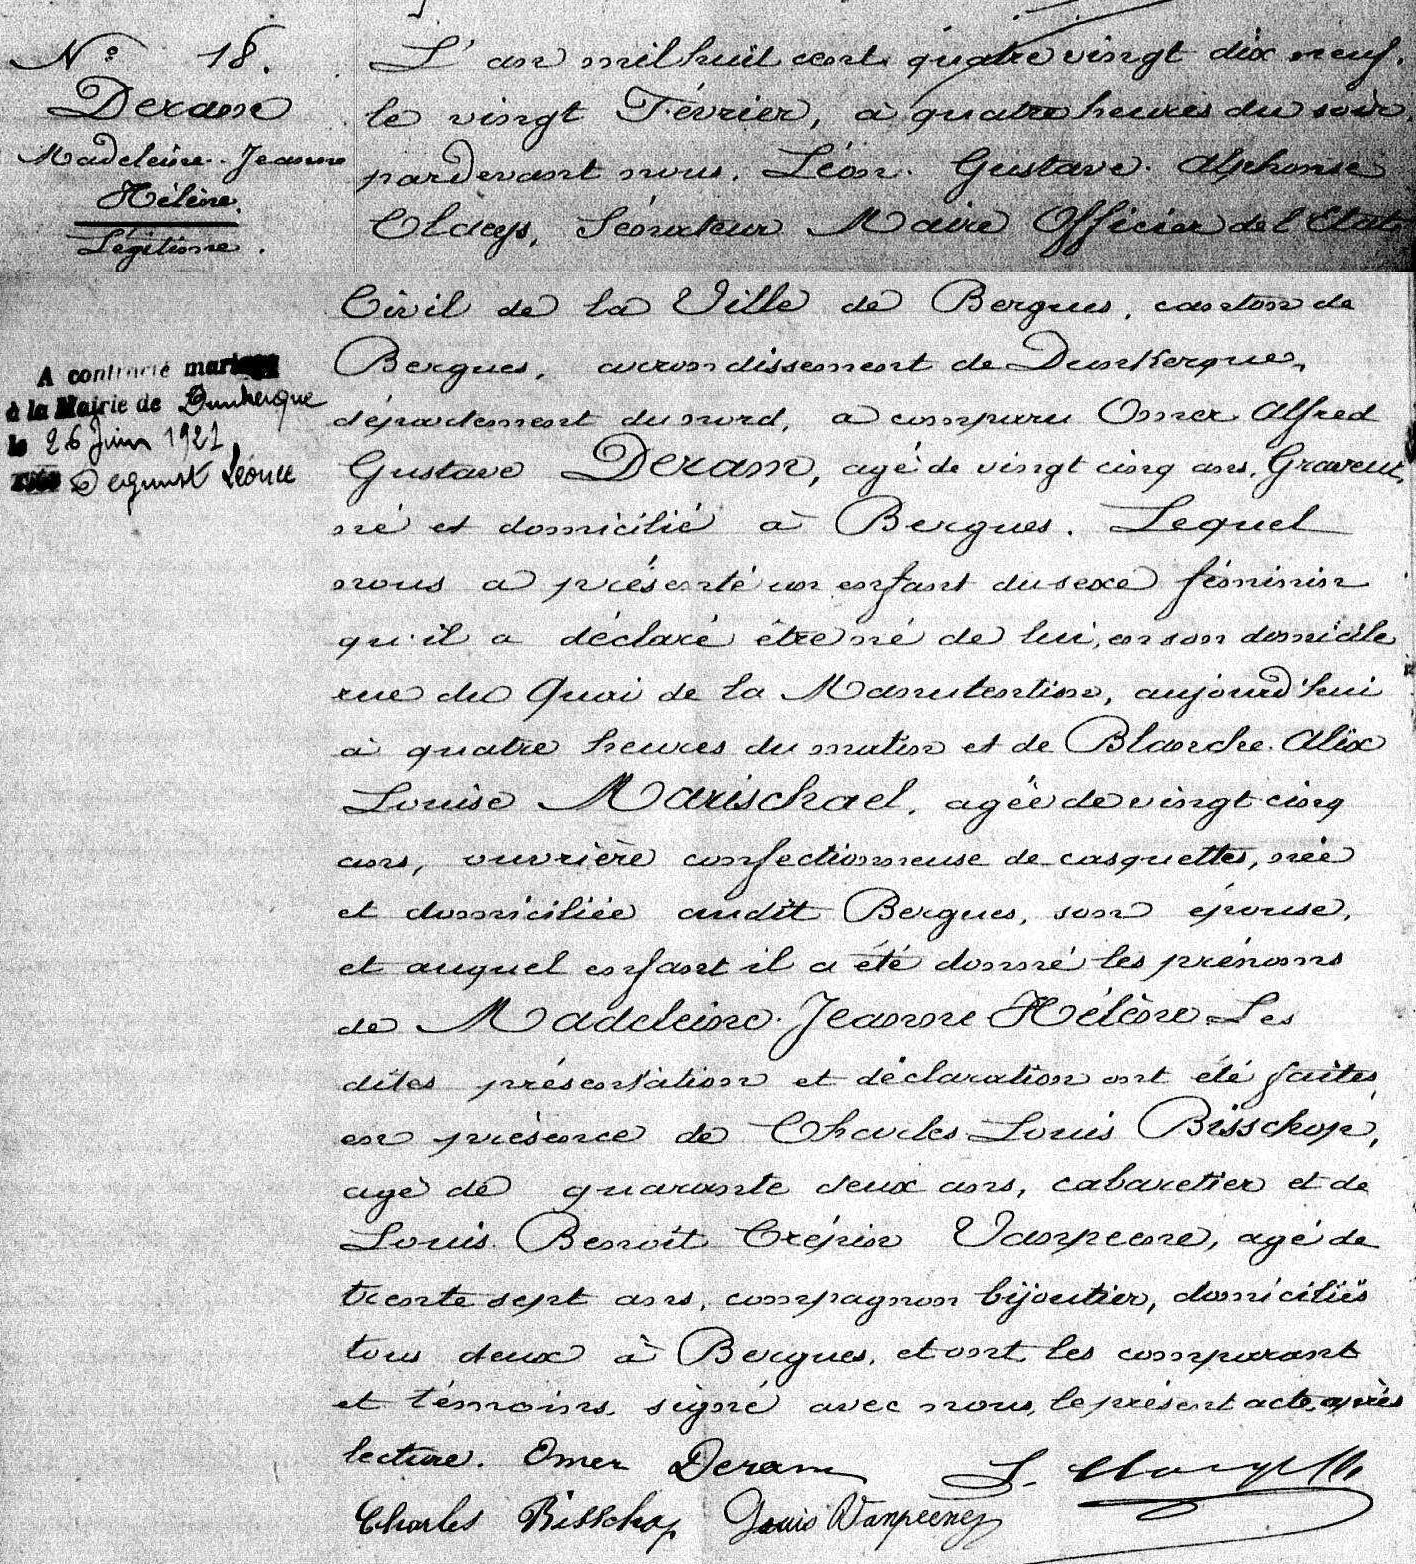 N° 18.
Deram
Madeleine Jeanne
Hélène.
Légitime.
A contracté mariage
à la Mairie de Dunkerque
le 26 Juin 1921
avec Degunst Léonce
L'an mil huit cent quatre vingt dix neuf,
le vingt Février, à quatre heures du soir,
pardevant nous, Léon Gustave Alphonse
Claeys, Sénateur Maire Officier de l'Etat
Civil de la Ville de Bergues, canton de
Bergues, arrondissement de Dunkerque,
département du nord, a comparu Omer Alfred
Gustave Deram, agé de vingt cinq ans, Graveur,
né et domicilié à Bergues. Lequel
nous a présenté un enfant du sexe féminin
qu'il a déclaré être né de lui, en son domicile
rue du Quai de la Manutention, aujourd'hui
à quatre heures du matin et de Blanche Alix
Louise Marischael, agée de vingt cinq
ans, ouvrière confectionneuse de casquettes, née
et domiciliée audit Bergues, son épouse,
et auquel enfant il a été donné les prénoms
de Madeleine Jeanne Hélène Les
dites présentation et déclaration ont été faites
en présence de Charles Louis Bisschop,
agé de quarante deux ans, cabaretier et de
Louis Benoît Crépin Vanpeene, agé de
trente sept ans, compagnon bijoutier, domiciliés
tous deux à Bergues, et ont les comparant
et témoins signé avec nous, le présent acte, après
lecture. Omer Deram L. Claeys
Charles Bisschop Louis Vanpeene